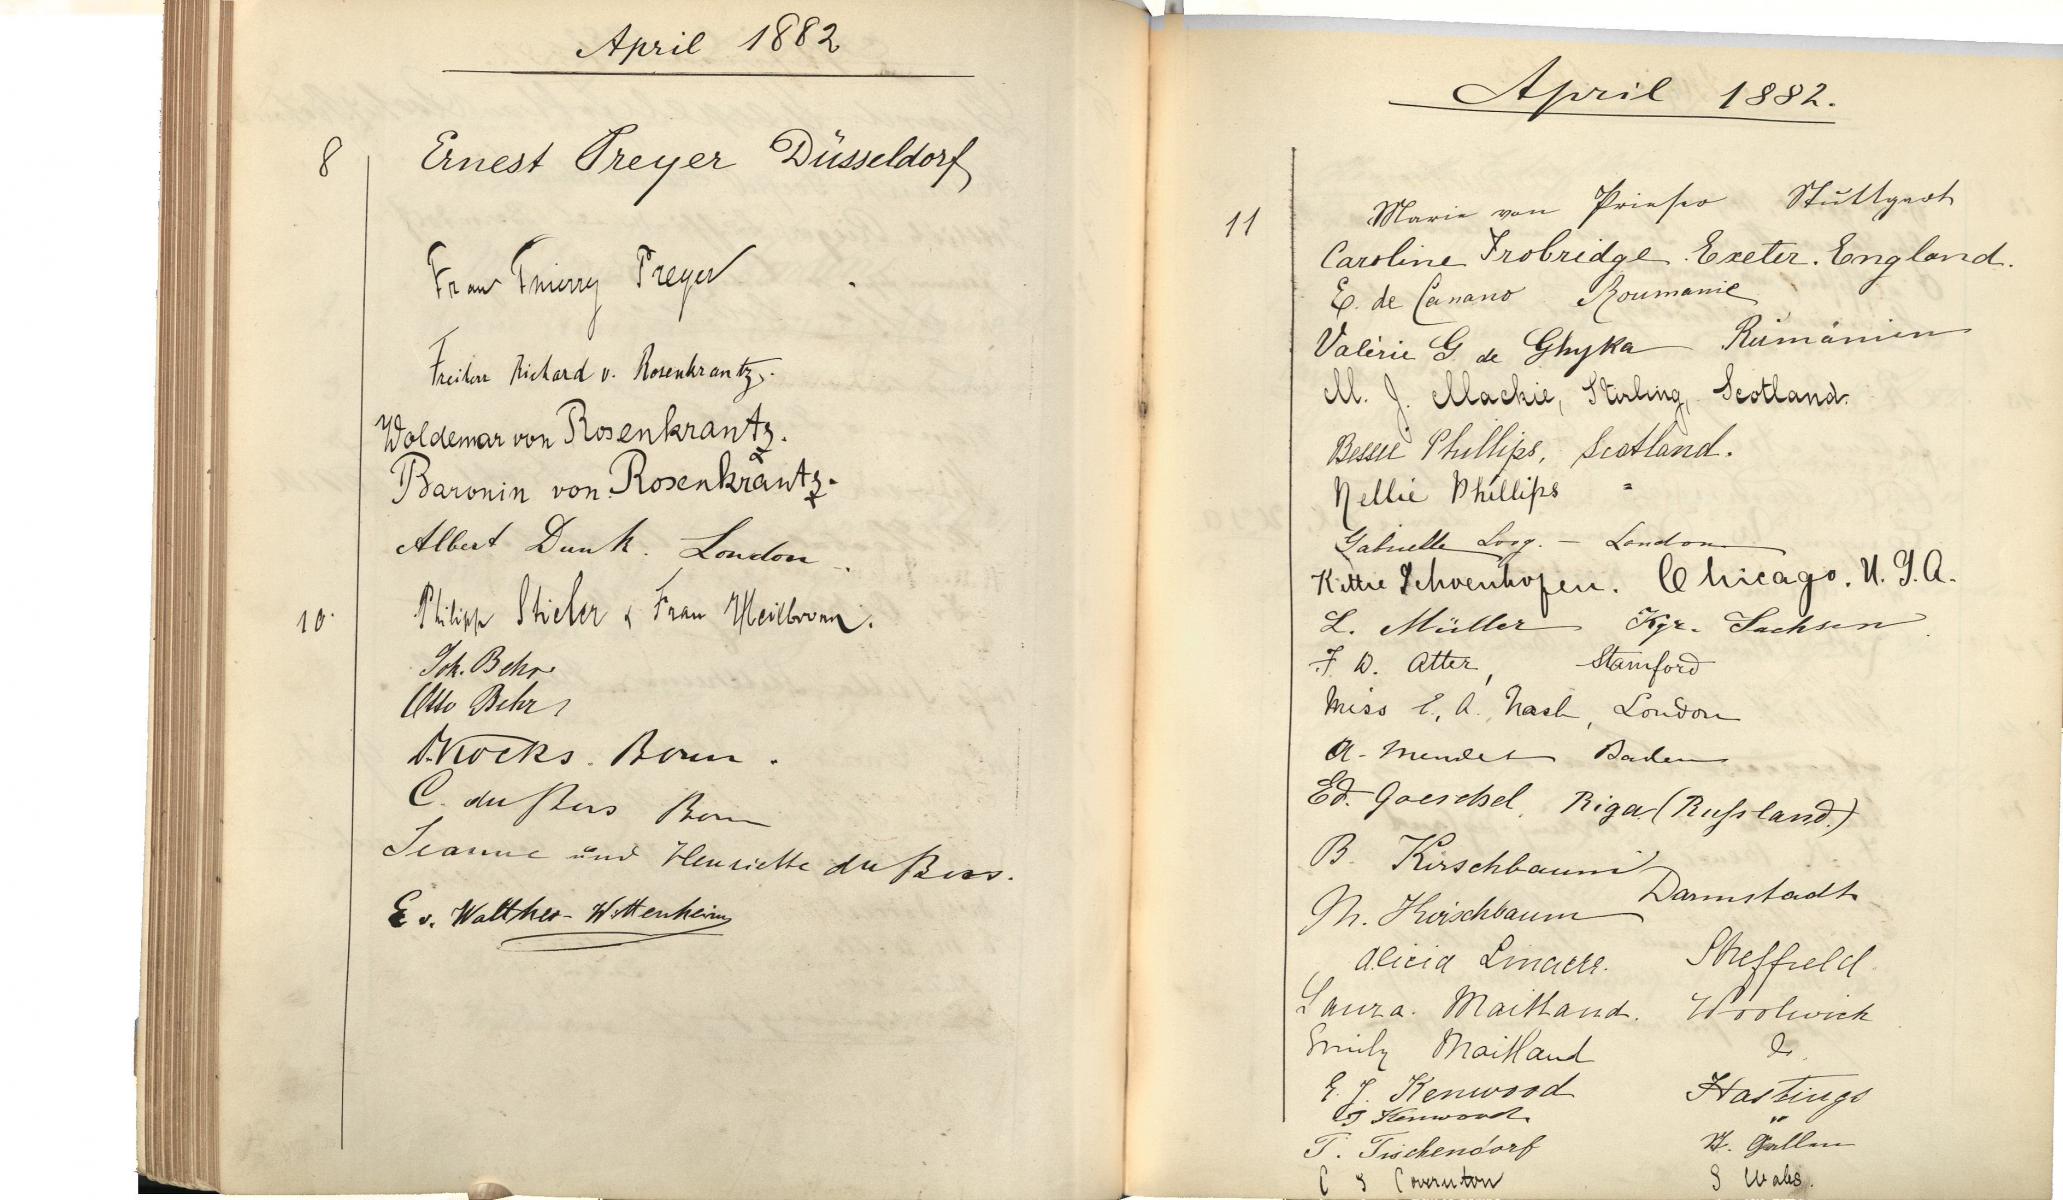 April 1882
8 Ernest Preyer Düsseldorf
Frau Thierry Preyer
Freiherr Richard v. Rosenkrantz.
Woldemar von Rosenkrantz.
Baronin von Rosenkrantz.
Albert Dunk. London
10. Philipp Stieler & Frau Heilbronn.
Joh. Behr
Otto Behr
Bonn.
C. Bonn
Jeanne und Henriette
E v. Walther-Wittenheim
April 1882.
11 Marie von Stuttgart
Caroline Trobridge. Exeter. England.
E. de Canano Roumanie
Valérie G. de Ghyka Rumänien
M. J. Mackie, Stirling, Scotland.
Bessie Phillips, Scotland.
Nellie Phillips "
Gabrielle - London
Kittie Schoenhofen. Chicago. U.S.A.
L. Müller Kgr. Sachsen
F. W. Atter, Stamford
Miss E. A. Nash, London
A. Mendel Baden
Ed. Goeschel. Riga (Russland.)
B. Kirschbaum
Darmstadt
M. Kirschbaum
Alicia Linacre. Sheffield
Laura. Maitland. Woolwich
Emily Maitland Do.
E. J. Kenwood Hastings
Kenwood "
T. Tischendorf St. Gallen
C S Covernton S Wales.